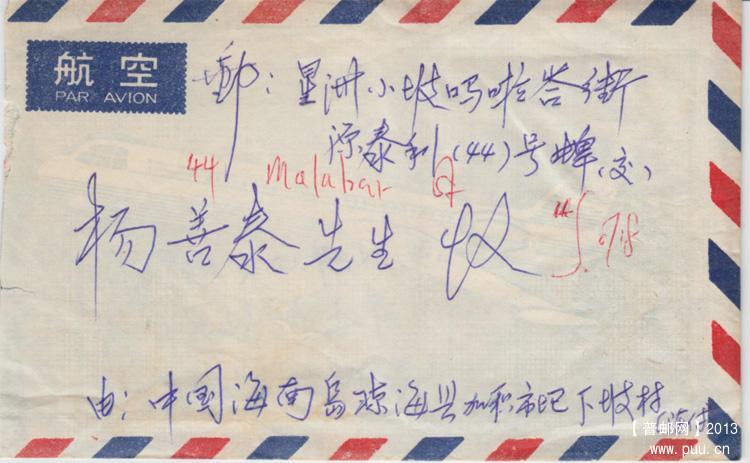 航空
PAR AVION
郵:星洲小坡吗啦答街
源泰利(44)号牌(交)
44 Malabar St
杨善泰先生收
由:中国海南岛琼海县加积市
下坡村
【普邮网】2013
www.puu.cn